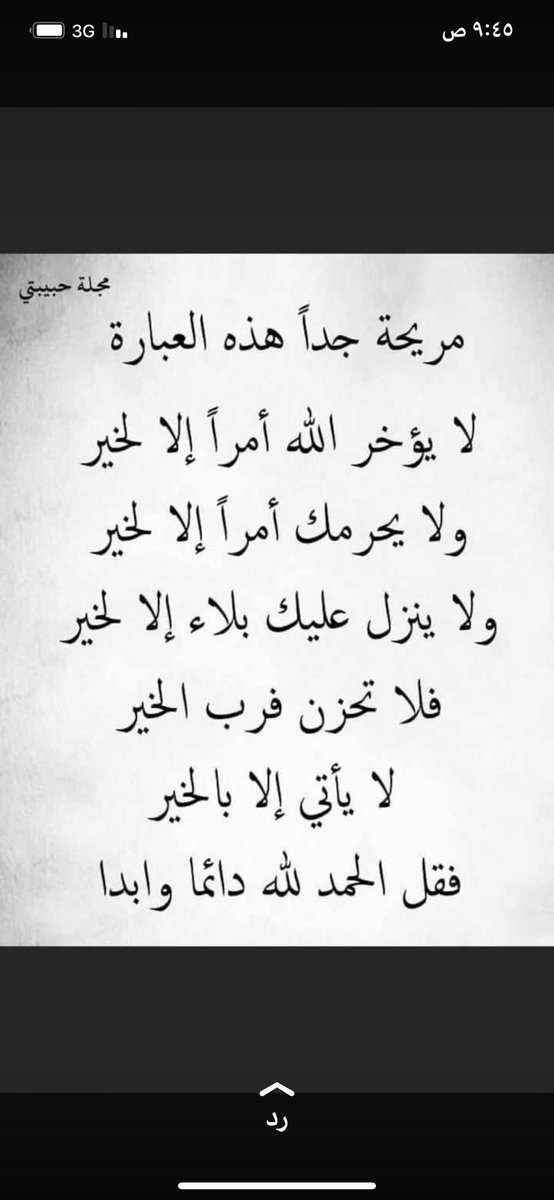 ٩:٤٥ ص
3G
مجلة حبيبتي
مريحة جداً هذه العبارة
لا يؤخر الله أمراً إلا لخير
ولا يحرمك أمراً إلا لخير
ولا ينزل عليك بلاء إلا لخير
فلا تحزن فرب الخير
لا يأتي إلا بالخير
فقل الحمد لله دائما وابدا
رد